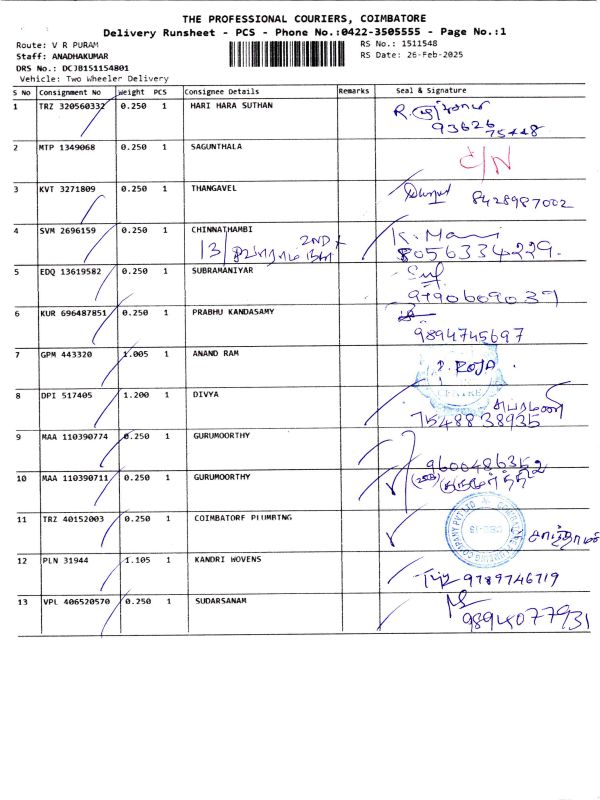 THE PROFESSIONAL COURIERS, COIMBATORE
Delivery Runsheet - PCS - Phone No.:0422-3505555 - Page No.:1
Route: V R PURAM
RS No.: 1511548
Staff: ANADHAKUMAR
RS Date: 26-Feb-2025
DRS No.: DCJB151154801
Vehicle: Two Wheeler Delivery
S No Consignment No Weight PCS Consignee Details Remarks Seal & Signature
1 TRZ 320560332 0.250 1 HARI HARA SUTHAN R.
93626
75448
2 MTP 1349068 0.250 1 SAGUNTHALA C/N
3 KVT 3271809 0.250 1 THANGAVEL 8428987002
4 SVM 2696159 0.250 1 CHINNATHAMBI K. Mani
13 2ND 8056334229.
5 EDQ 13619582 0.250 1 SUBRAMANIYAR
9790609039
6 KUR 696487851 0.250 1 PRABHU KANDASAMY
9894745697
7 GPM 443320 1.005 1 ANAND RAM ROJA
CENTRE
8 DPI 517405 1.200 1 DIVYA
7548838935
9 MAA 110390774 0.250 1 GURUMOORTHY
9600486352
10 MAA 110390711 0.250 1 GURUMOORTHY
11 TRZ 40152003 0.250 1 COIMBATORE PLUMBING
12 PLN 31944 1.105 1 KANDRI WOVENS 9789746719
13 VPL 406520570 0.250 1 SUDARSANAM
9894077931